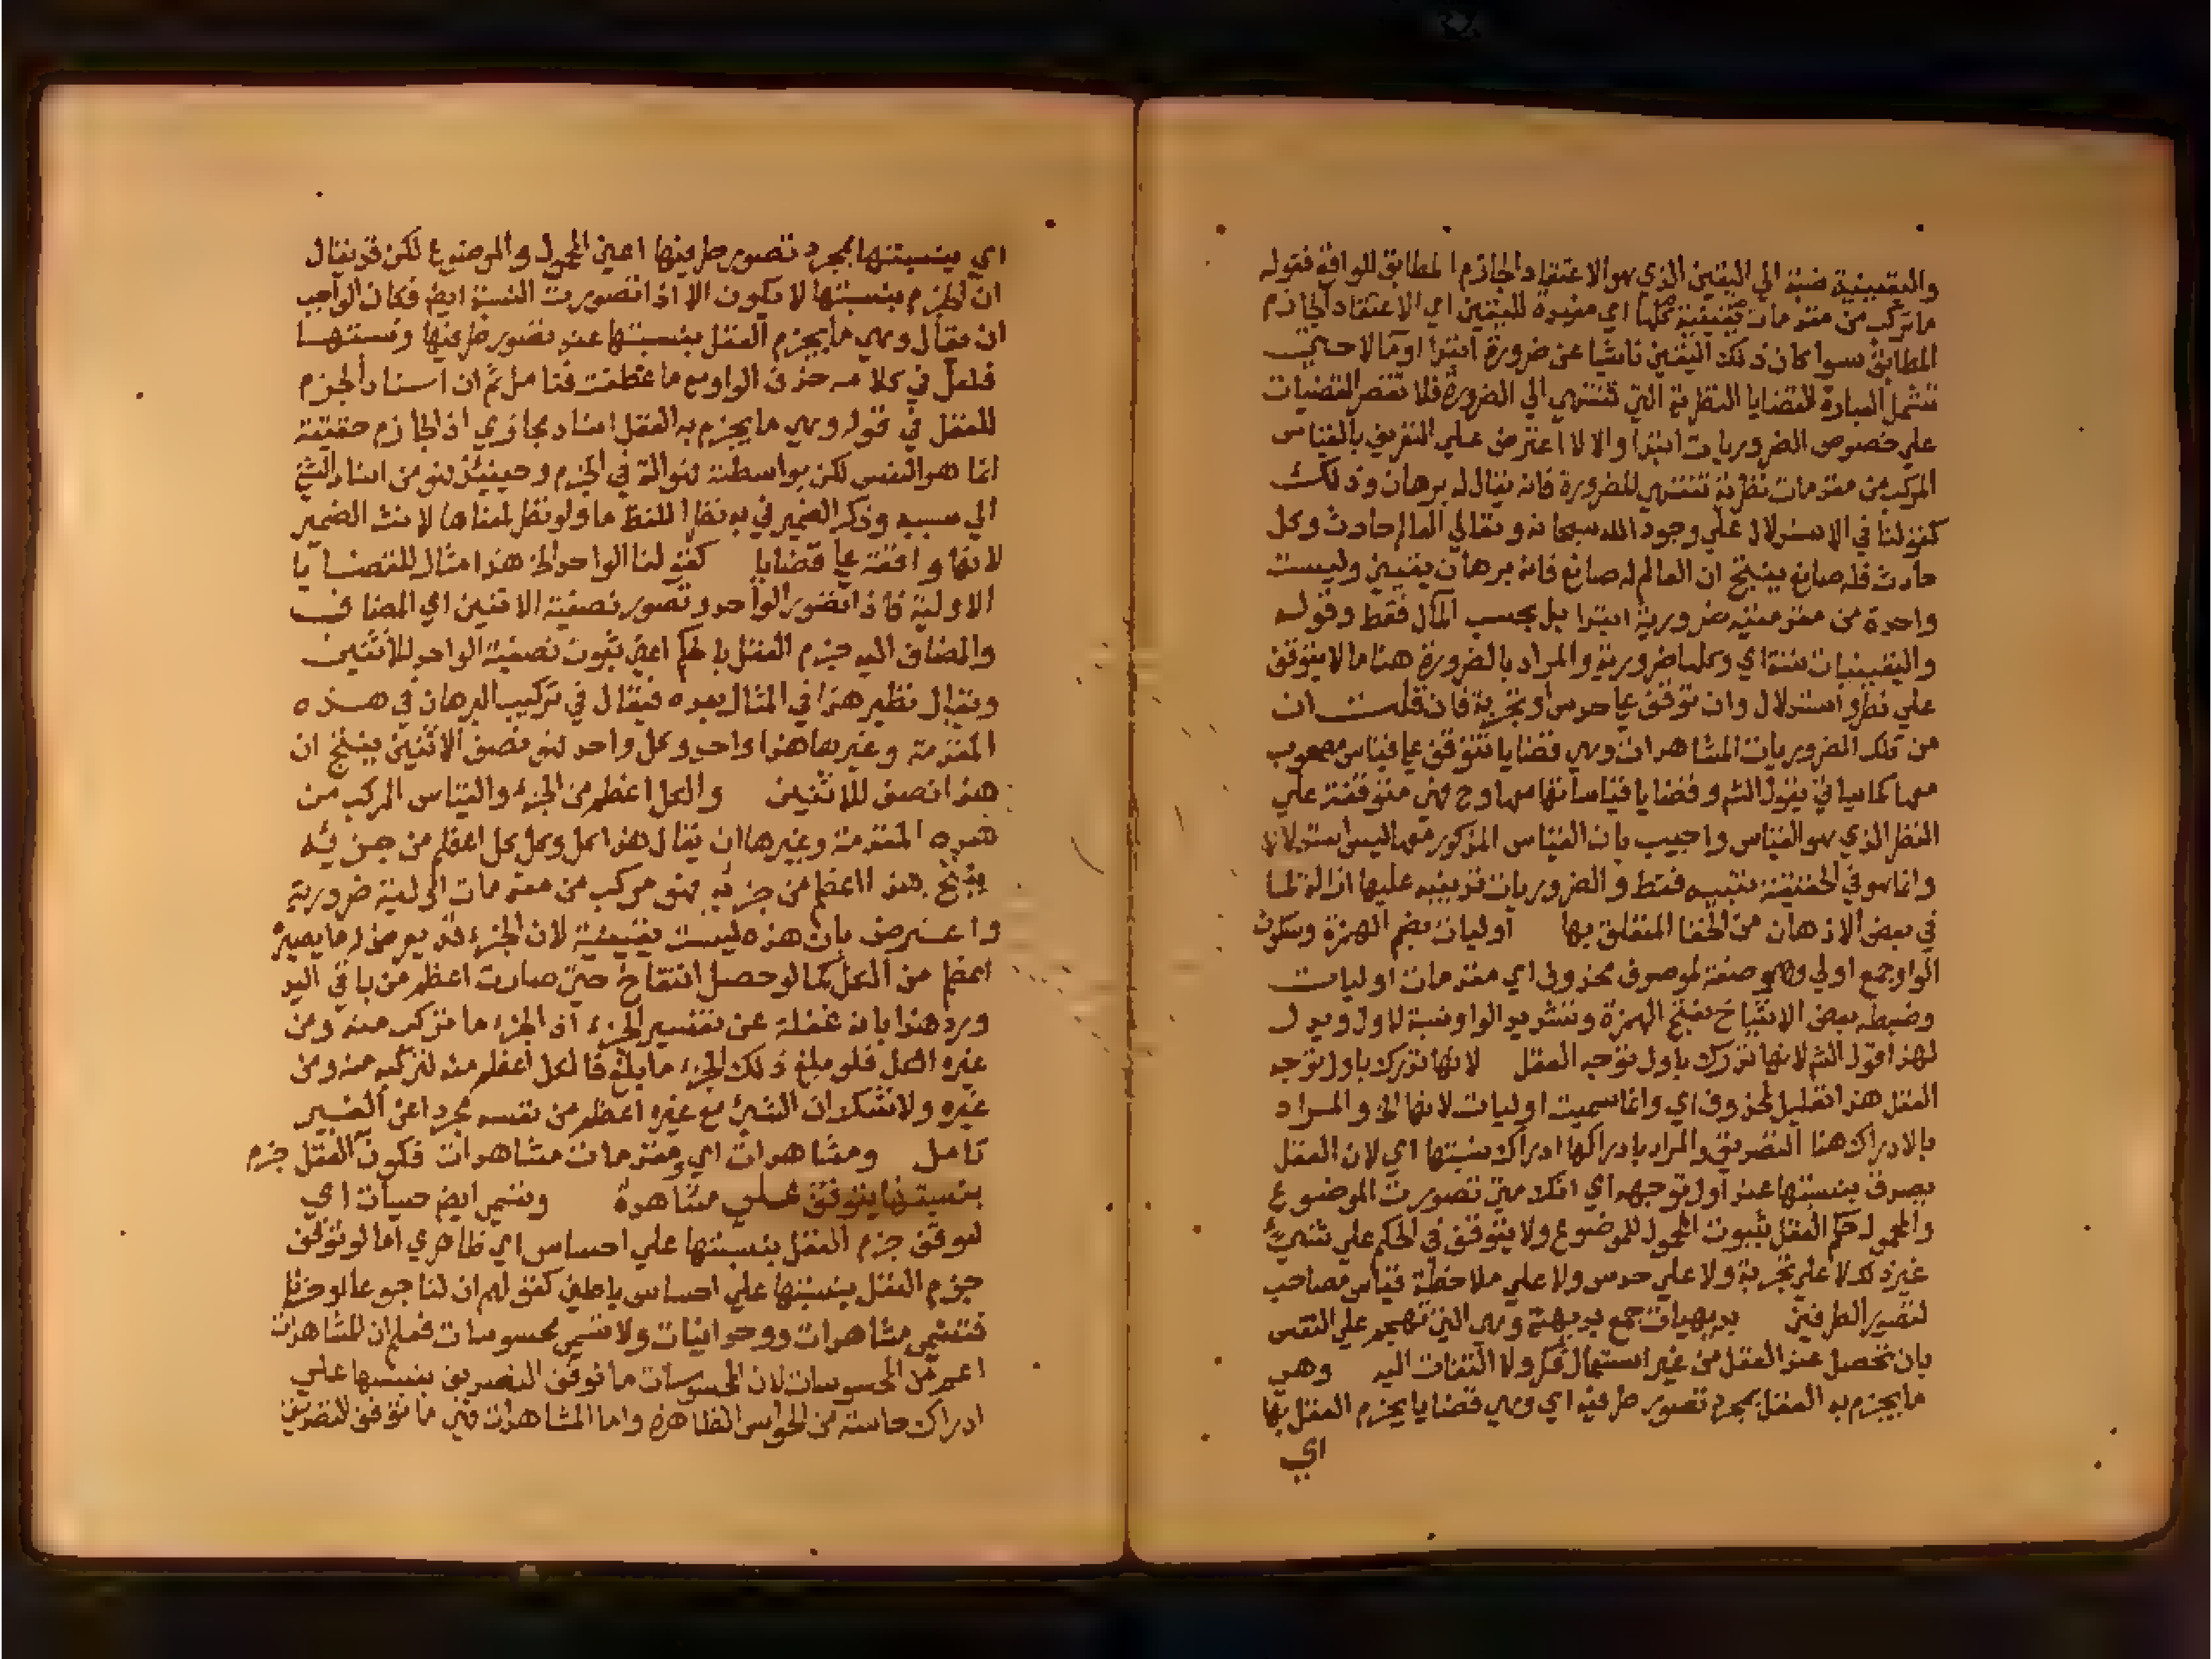 واليقينية نسبة الي اليقين الذي هو الاعتقاد الجازم المطابق للواقع فقوله
ما تركب من مقدمات يقينية كلها اي مفيدة لليقين اي الاعتقاد الجازم
المطابق سوا كان ذلك اليقين ناشيا عن ضرورة ابتدا او مآلا حتي
تشمل العبارة القضايا النظرية التي تنتهي الي الضرورة فلا تقصر القضيات
علي خصوص الضروريات ابتدا والا لاعترض علي التعريف بالقياس
المركب من مقدمات نظرية تنتهي للضرورة فانه يقال له برهان وذلك
كقولنا في الاستدلال علي وجود الله سبحانه وتعالي العالم حادث وكل
حادث فله صانع ينتج ان العالم له صانع فانه برهان يقيني وليست
واحدة من مقدمتيه ضرورية ابتدا بل بحسب المآل فقط وقوله
واليقينيات ستة اي وكلها ضرورية والمراد بالضرورة هنا ما لا يتوقف
علي نظر واستدلال وان توقف علي حدس او تجربة فان قلت ان
من تلك الضروريات المشاهدات وهي قضايا تتوقف علي قياس مصحوب
معها كما سياتي في قول الشم وقضايا قياساتها معها وح فهي متوقفة علي
النظر الذي هو القياس واجيب بان القياس المذكور معها ليس استدلالا
وانما هو في الحقيقة تنبيه فقط والضروريات قد ينبه عليها ازالة لما
في بعض الاذهان من الخفا المتعلق بها اوليات بضم الهمزة وسكون
الواو جمع اولي وهو صفة لموصوف محذوف اي مقدمات اوليات
وضبطه بعض الاشياخ بفتح الهمزة وتشديد الواو نسبة لاول ويدل
لهذا قول الشم لانها تدرك باول توجه العقل لانها تدرك باول توجه
العقل هذا تعليل لمحذوف اي وانما سميت اوليات لانها الخ والمراد
بالادراك هنا التصديق والمراد بادراكها ادراك نسبتها اي لان العقل
يصدق بنسبتها عند اول توجهه اي انك متي تصورت الموضوع
والمحمول حكم العقل بثبوت المحمول للموضوع ولا يتوقف في الحكم علي شيئ
غير ذلك لا علي تجربة ولا علي حدس ولا علي ملاحظة قياس مصاحب
لتصور الطرفين بديهيات جمع بديهية وهي التي تهجم علي النفس
بان تحصل عند العقل من غير استعمال فكر ولا التفات اليه وهي
ما يجزم به العقل بمجرد تصور طرفيه اي وهي قضايا يجزم العقل بها
اي
اي بنسبتها بمجرد تصور طرفيها اعني المحمول والموضوع لكن قد يقال
ان الجزم بنسبتها لا يكون الا اذا تصورت النسبة ايضا فكان الواجب
ان يقال وهي ما يجزم العقل بنسبتها عند تصور طرفيها ونسبتها
فلعل في كلامه حذف الواو مع ما عطفت فتامل ثم ان اسناد الجزم
للعقل في قوله وهي ما يجزم به العقل اسناد مجازي اذ الجازم حقيقة
انما هو النفس لكن بواسطته فهو الة في الجزم وحينئذ فهو من اسناد الشيئ
الي سببه وذكر الضمير في به نظرا للفظ ما ولو نظر لمعناها لانث الضمير
لانها واقعة علي قضايا كقولنا الواحد الخ هذا مثال للقضايا
الاولية فاذا تصور الواحد وتصور نصفية الاثنين اي المضاف
والمضاف اليه جزم العقل بالحكم اعني ثبوت نصفية الواحد للاثنين
ويقال نظير هذا في المثال بعده فيقال في تركيب البرهان في هذه
المقدمة وغيرها هذا واحد وكل واحد فهو نصف الاثنين ينتج ان
هذا نصف للاثنين والكل اعظم من الجزء والقياس المركب من
هذه المقدمة وغيرها ان يقال هذا كل وكل كل اعظم من جزئه
ينتج هذا اعظم من جزئه فهو مركب من مقدمات اولية ضرورية
واعترض بان هذه ليست يقينية لان الجزء قد يعرض له ما يصيره
اعظم من الكل كما لو حصل انتفاخ حتي صارت اعظم من باقي اليد
ورد هذا بانه غفلة عن تفسير الجزء اذ الجزء ما تركب منه ومن
غيره الكل فلو بلغ ذلك الجزء ما بلغ فالكل اعظم منه لتركبه منه ومن
غيره ولا شك ان الشيئ مع غيره اعظم من نفسه مجردا عن الغير
تامل ومشاهدات اي ومقدمات مشاهدات فكون العقل جزم
بنسبتها يتوقف علي مشاهدة وتسمي ايضا حسيات اي
لتوقف جزم العقل بنسبتها علي احساس اي ظاهري اما لو توقف
جزم العقل بنسبتها علي احساس باطني كقولهم ان لنا جوعا او حزنا
فتسمي مشاهدات ووجدانيات ولا تسمي محسوسات فعلم ان المشاهدات
اعم من المحسوسات لان المحسوسات ما توقف التصديق بنسبتها علي
ادراك حاسة من الحواس الظاهرة واما المشاهدات فهي ما توقف التصديق